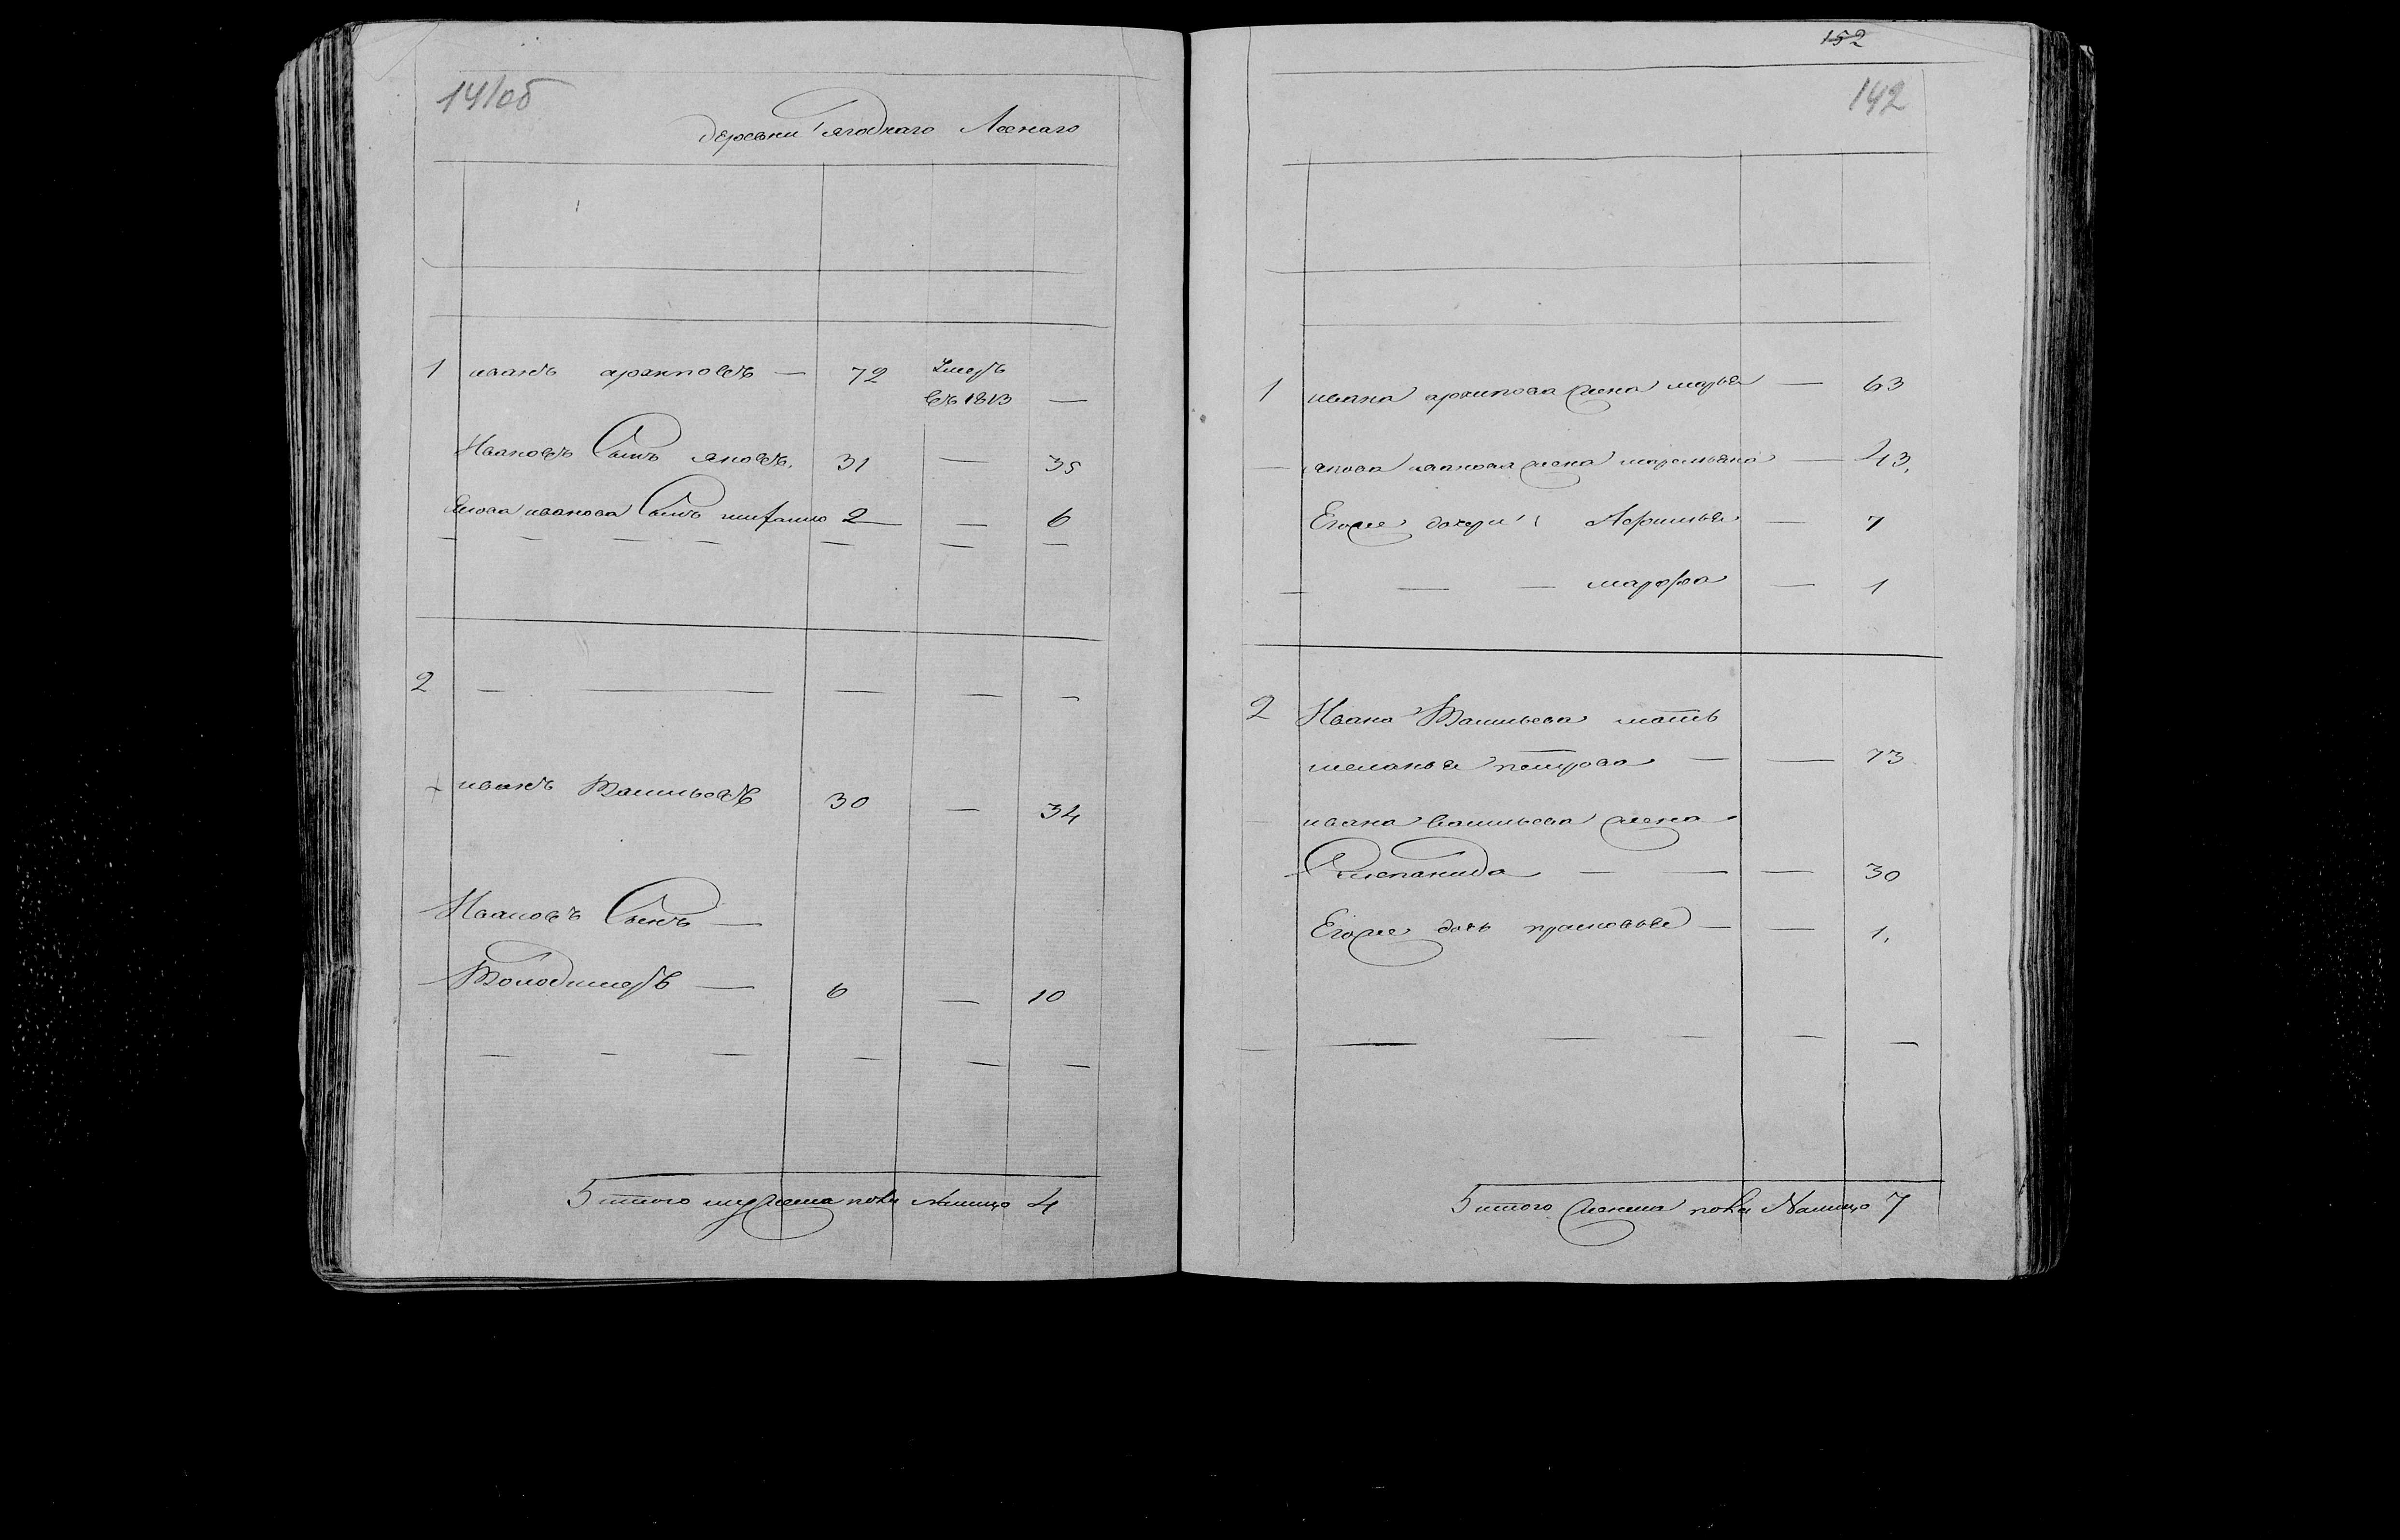 141об
деревни Ягоднаго Леснаго
1 иванъ архиповъ — 72 Умеръ
въ 1813 —
Ивановъ Сынъ яковъ. 31 — 35
Якова иванова Сынъ 2 — 6
2 — — — — —
иванъ Васильевъ 30 — 34
Ивановъ Сынъ —
Володимеръ — 6 — 10
итого мужеска пола налицо 4
152
142
1 ивана архипова жена марья — 63
— якова иванова жена маремьяна — 43.
Егоже дочери Афимья — 7
— — — марфа — 1
2 Ивана Васильева мать
меланья петрова — — 73
ивана васильева жена
Степанида — — — 30
Егоже дочь прасковья — — 1.
итого женска пола Налицо 7